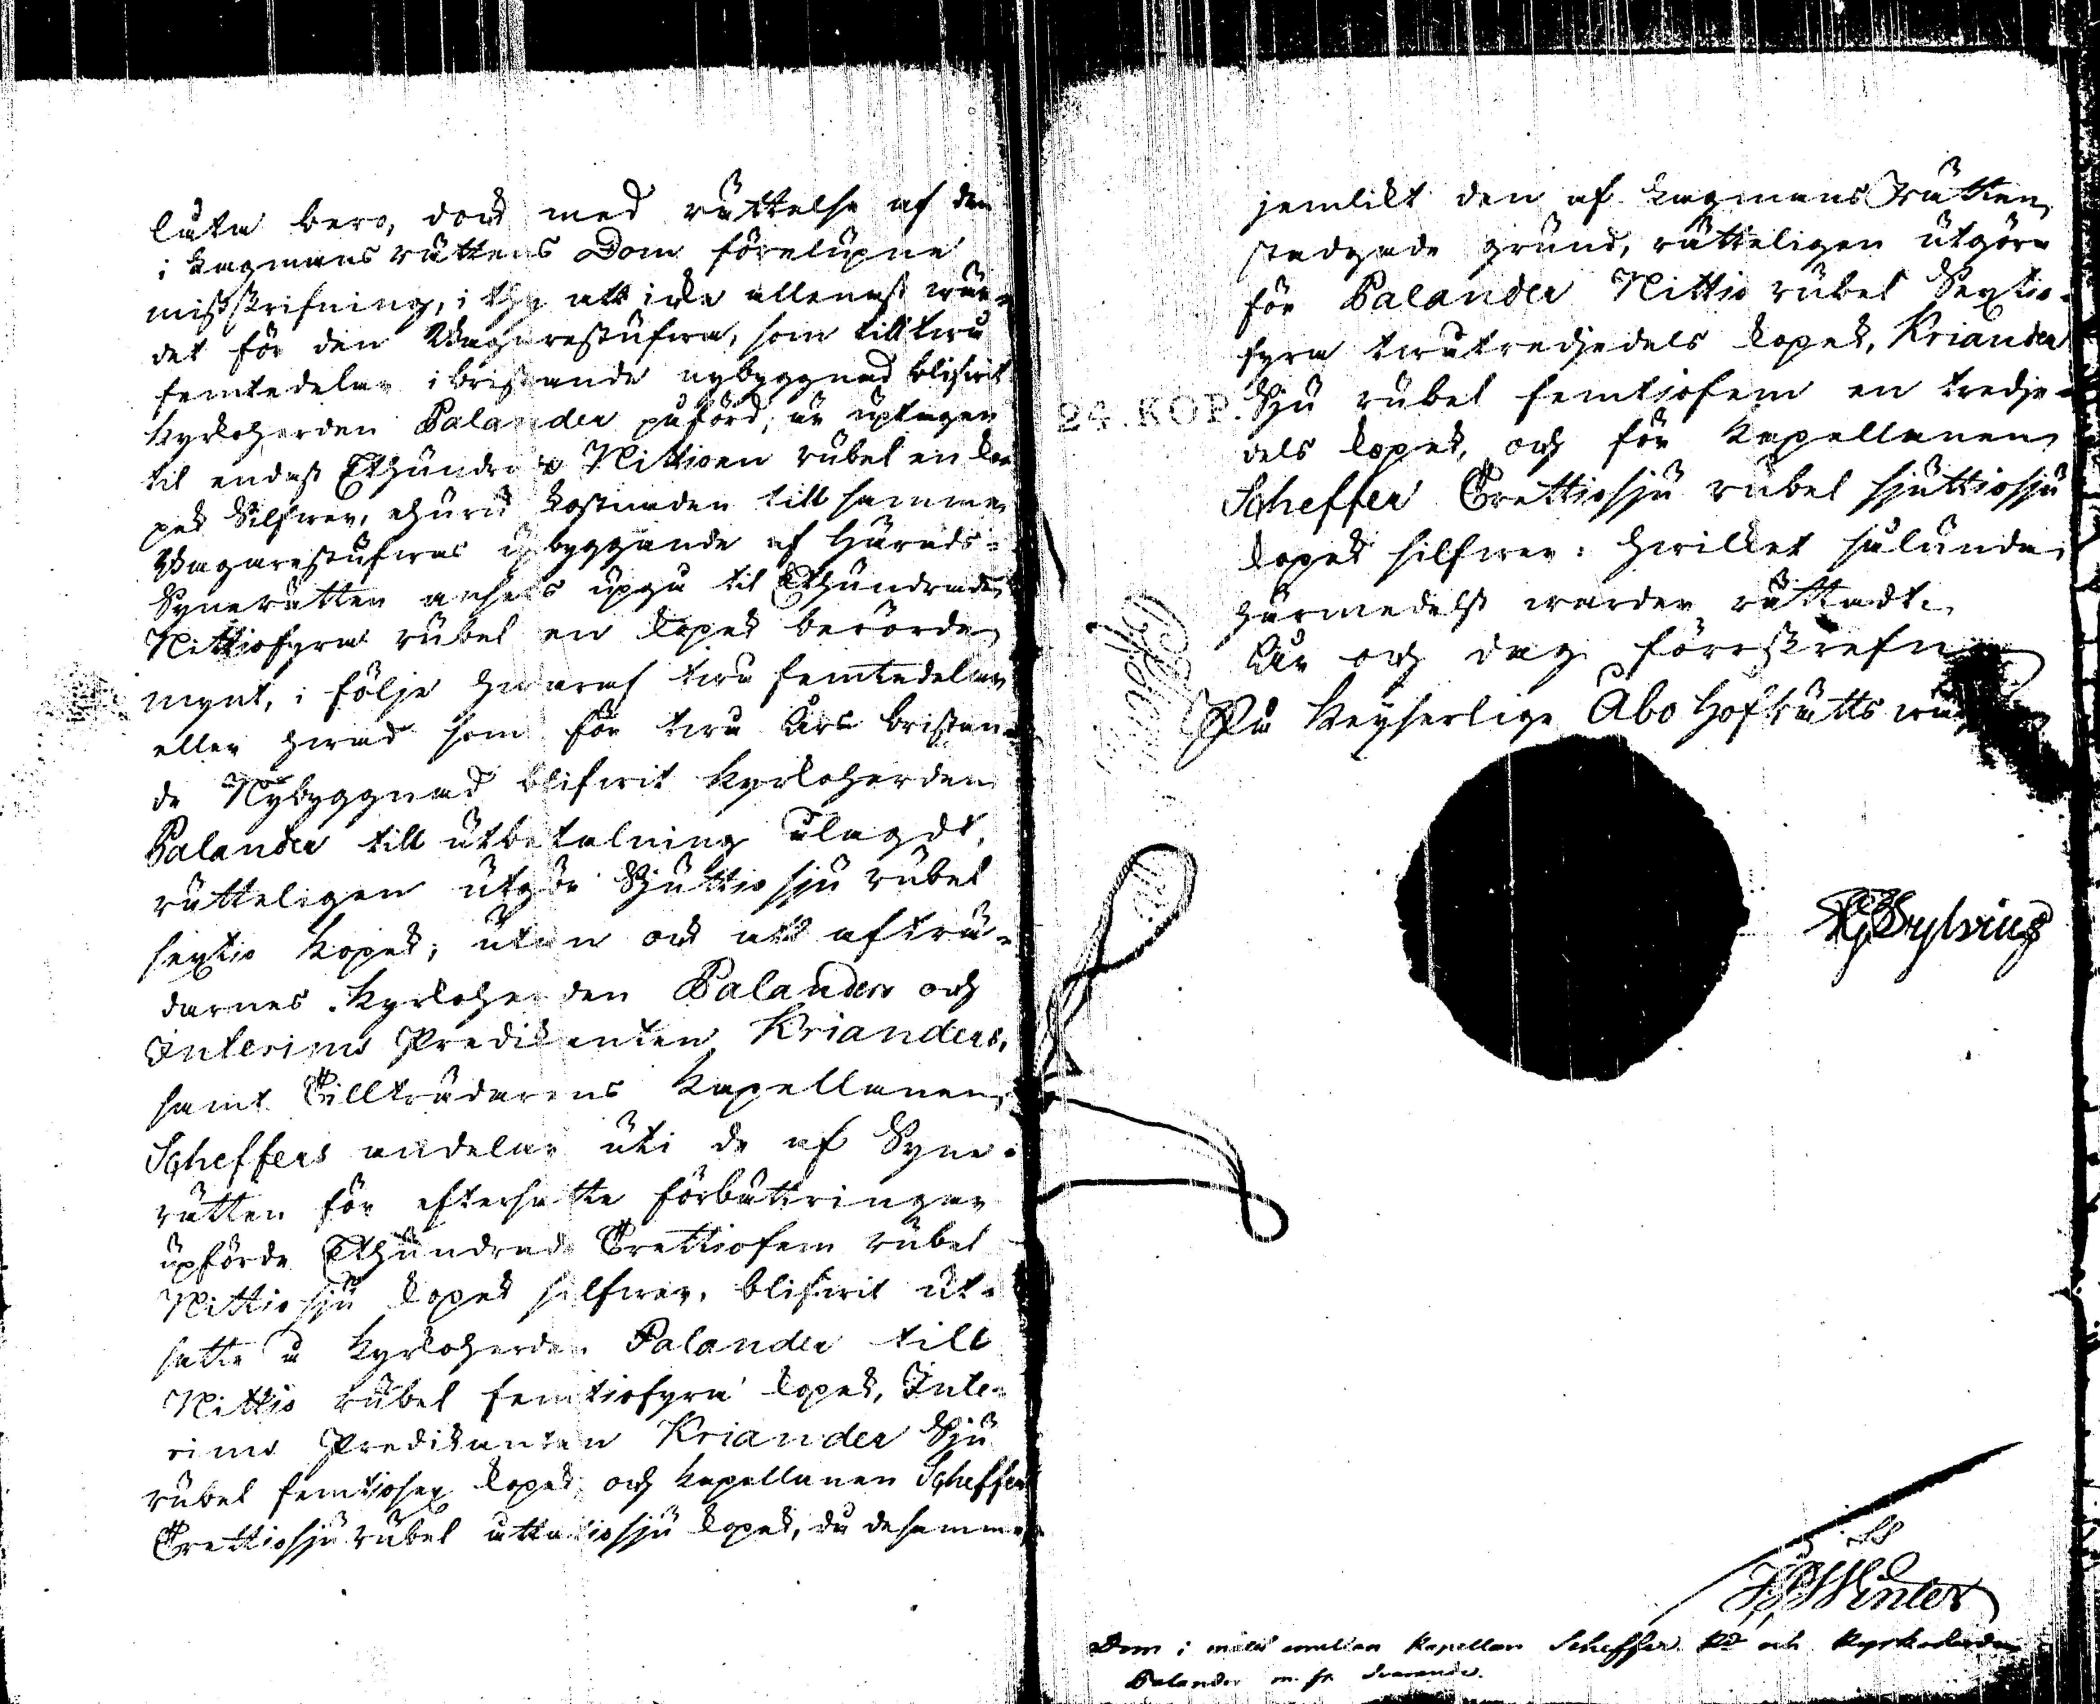 låta bero, dock med rättelse af den
i Lagmans rättens Dom förelupne
misskrifning, i thy att icke allenast wär-
det för den Wagarestufwa, som till twå
femtedelar i bristande nybyggnad blifwit
Kyrkoherden Palander påförd, är uptagen
til endast Etthundra Nittioen rubel en ko-
pek Silfwer, ehuru kostnaden till samma
Wagarestufwas upbyggande af Härads-
Synerätten anses upgå til Etthundrade
Nittiofyra rubel en kopek berörde
mynt, i följe hwaraf twå femtedelar
eller hwad som för twå Års bristan-
de Nybyggnad blifwit Kyrkoherden
Palander till utbetalning ålagdt,
rätteligen utgör Sjuttiosju rubel
sextio kopek; utan ock att afträ-
darnes Kyrkoherden Palanders och
Interims Predikanten Krianders,
samt Tillträdarens Kapellanen
Scheffers andelar uti de af Syne-
rätten för eftersatte förbättringar
upförde Etthundrade Trettiofem rubel
Nittiosju kopek silfwer, blifwit ut-
satte å Kyrkoherden Palander till
Nittio rubel femtiofyra kopek, Inte-
rims Predikanten Kriander Sju
rubel femtiosex kopek och Kapellanen Scheffer
Trettiosju rubel åttatiosju kopek, då desamma
jemlikt den af Lagmans Rätten
stadgade grund, rätteligen utgöra
för Palander Nittio rubel Sextio-
fyra twåtredjedels kopek, Kriander
Sju rubel femtiofem en tredje-
dels kopek, och för Kapellanen
Scheffer Trettiosju rubel sjuttiosju
kopek silfwer: hwilket sålunda
härmedelst warder rättadt.
År och dag förreskrefne
På Keyserlige Åbo HofRätts wäg
24. KOP.
Winter
Dom i målet emellan Kapellan Scheffer Kd och Kyrkoherden
Palander m. fl. Svarande.